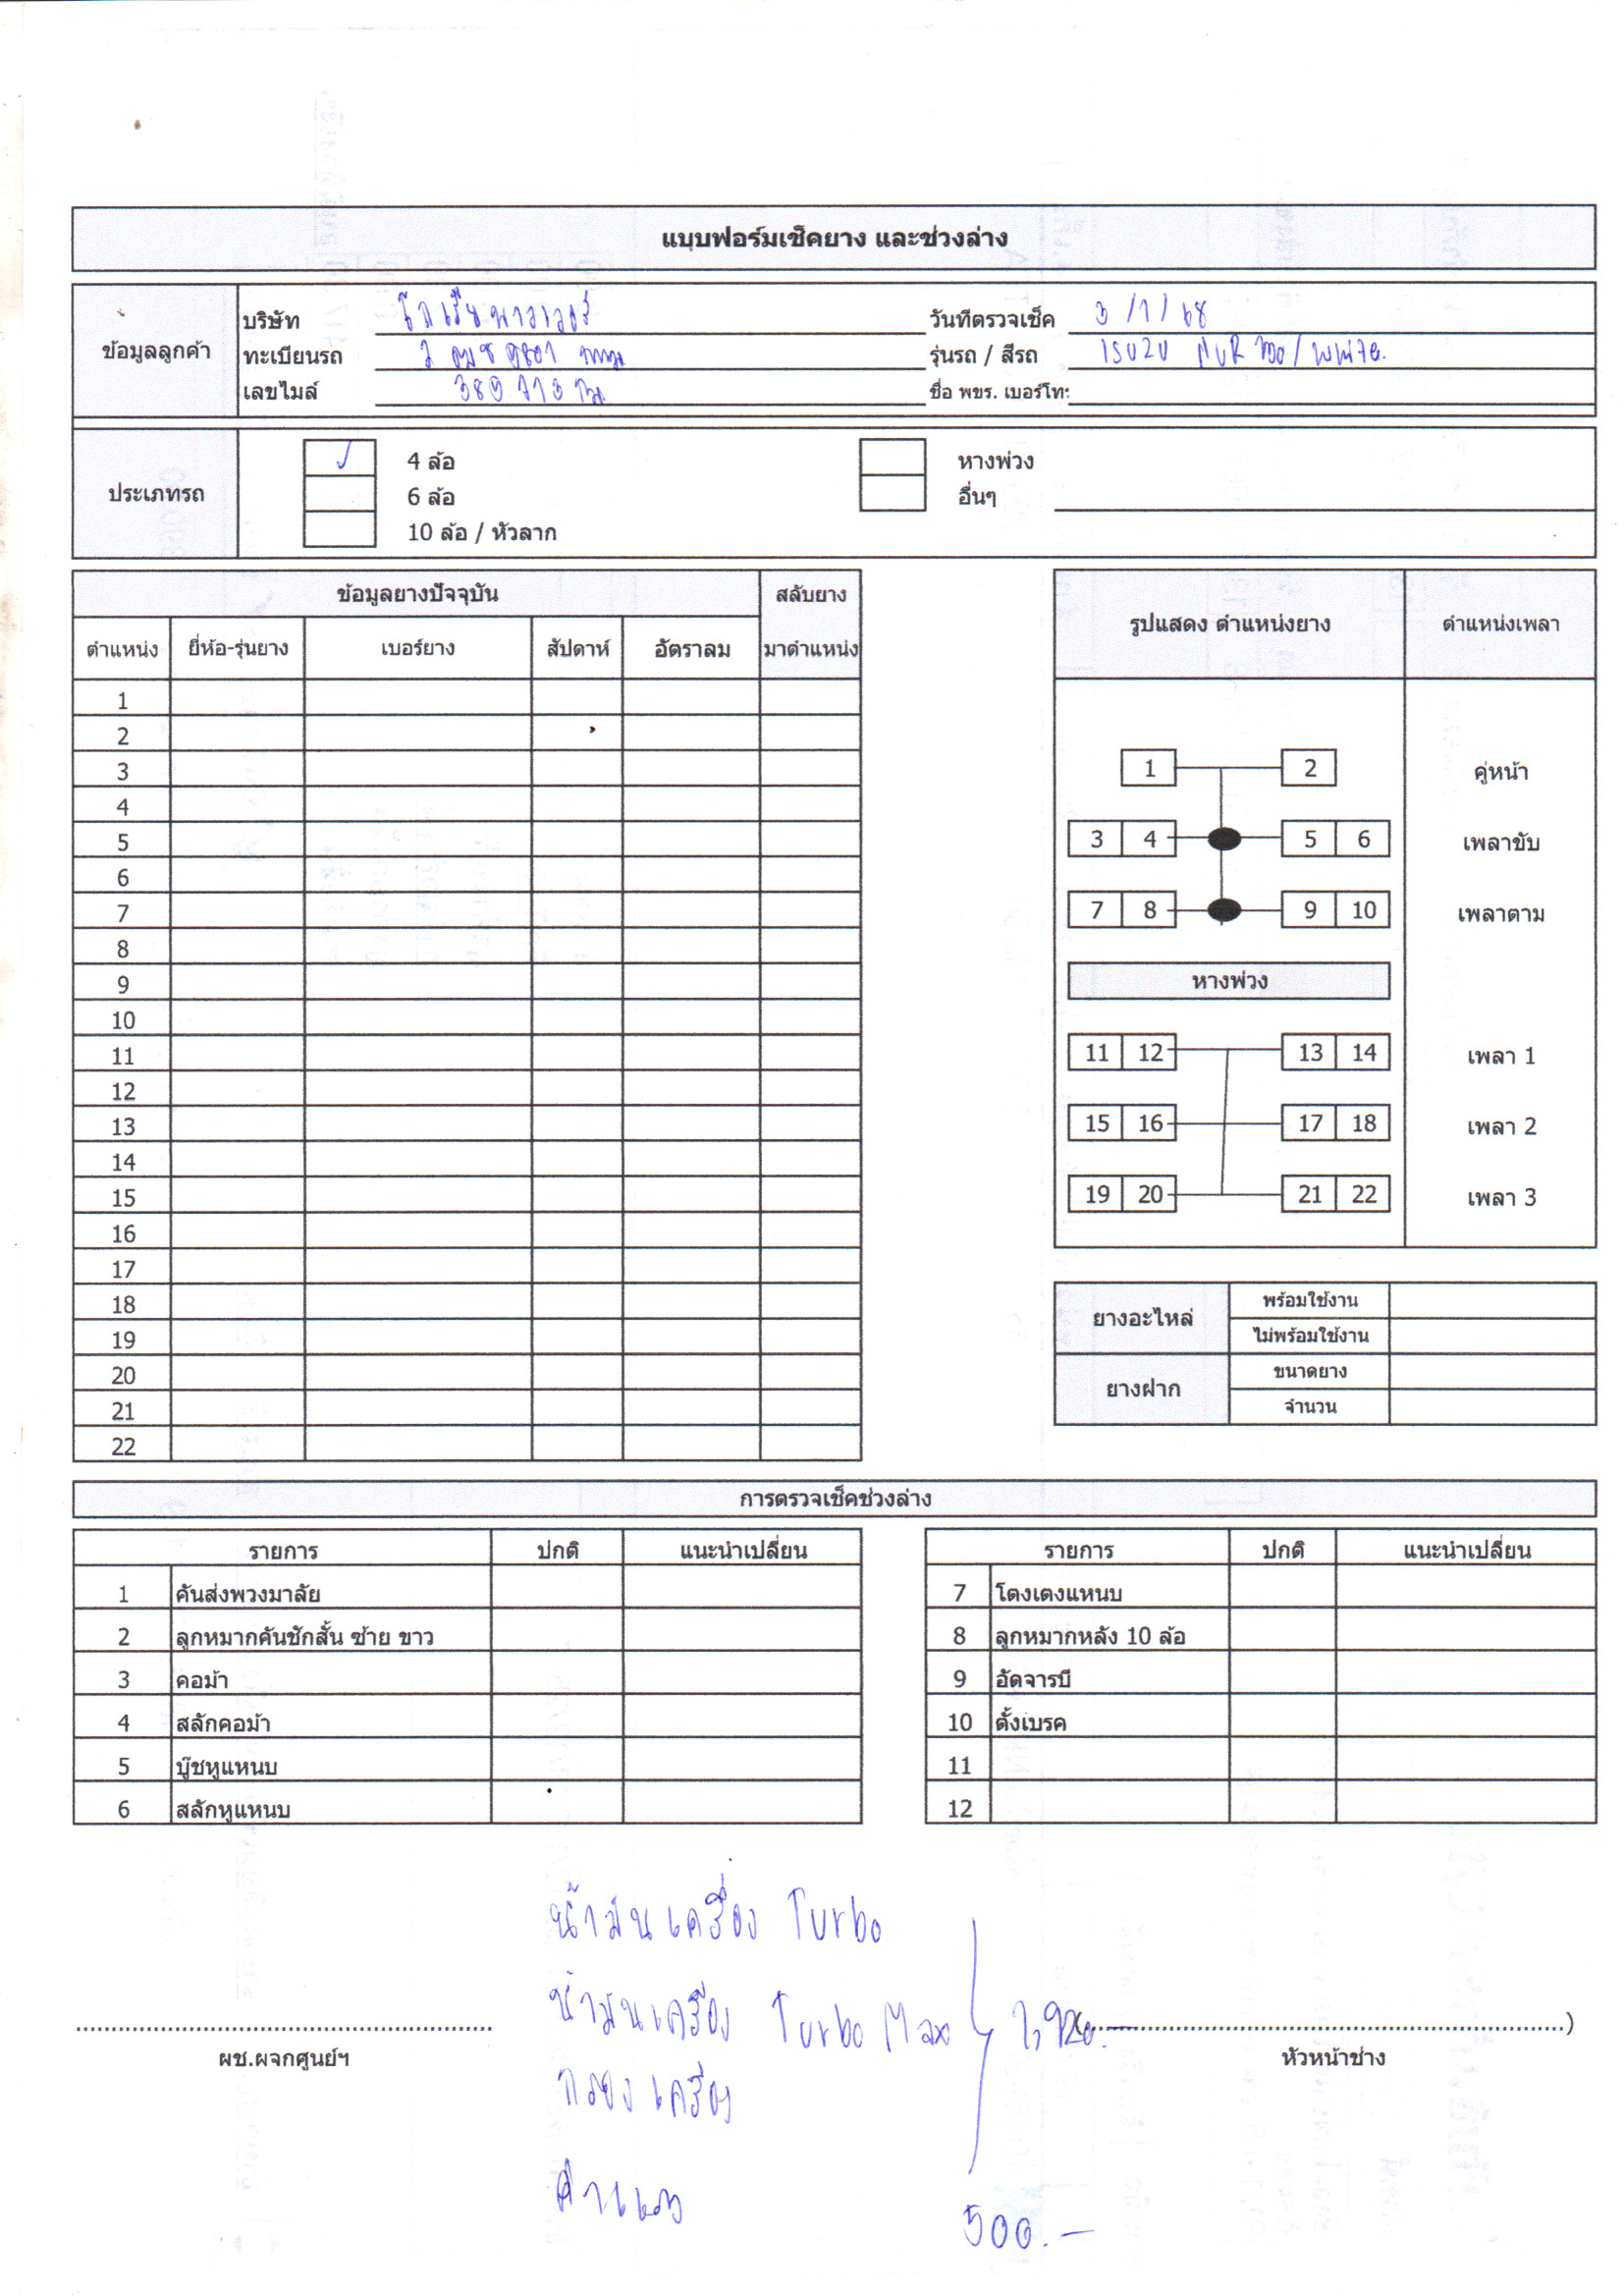 แบบฟอร์มเช็คยาง และช่วงล่าง
ข้อมูลลูกค้า
บริษัท
วันที่ตรวจเช็ค 3/1/68
ทะเบียนรถ
รุ่นรถ / สีรถ ISUZU / White.
เลขไมล์
ชื่อ พขร. เบอร์โทร
ประเภทรถ
✓ 4 ล้อ
หางพ่วง
6 ล้อ
อื่นๆ
10 ล้อ / หัวลาก
ข้อมูลยางปัจจุบัน สลับยาง
ตำแหน่ง ยี่ห้อ-รุ่นยาง เบอร์ยาง สัปดาห์ อัตราลม มาตำแหน่ง
1
2
3
4
5
6
7
8
9
10
11
12
13
14
15
16
17
18
19
20
21
22
รูปแสดง ตำแหน่งยาง ตำแหน่งเพลา
1 2 คู่หน้า
3 4 5 6 เพลาขับ
7 8 9 10 เพลาตาม
หางพ่วง
11 12 13 14 เพลา 1
15 16 17 18 เพลา 2
19 20 21 22 เพลา 3
ยางอะไหล่ พร้อมใช้งาน
ไม่พร้อมใช้งาน
ยางฝาก ขนาดยาง
จำนวน
การตรวจเช็คช่วงล่าง
รายการ ปกติ แนะนำเปลี่ยน
1 คันส่งพวงมาลัย
2 ลูกหมากคันชักสั้น ซ้าย ขาว
3 คอม้า
4 สลักคอม้า
5 บู๊ชหูแหนบ
6 สลักหูแหนบ
รายการ ปกติ แนะนำเปลี่ยน
7 โตงเตงแหนบ
8 ลูกหมากหลัง 10 ล้อ
9 อัดจารบี
10 ตั้งเบรค
11
12
น้ำมันเครื่อง Turbo
น้ำมันเครื่อง Turbo Max
กรองเครื่อง
ค่าแรง 500.-
ผช.ผจกศูนย์ฯ
หัวหน้าช่าง